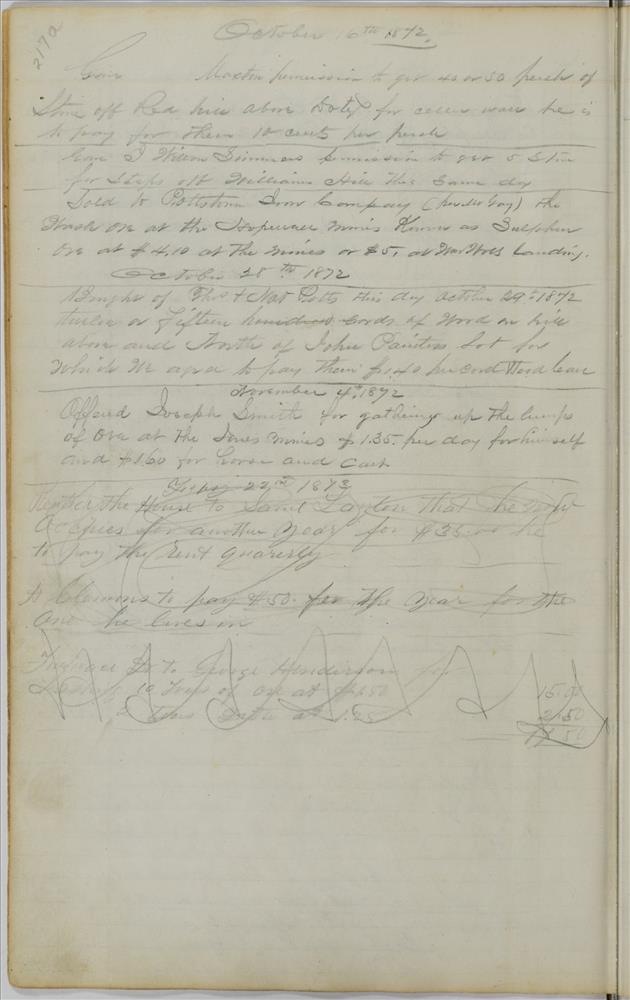 217a
October 16th 1872.
Gave Maxton permission to get 40 or 50 perch of
Stone off Red hill above Doty for cellar wall he is
to pay for them 10 cents per perch
Gave J Wilson Simmers permission to get 5 Stone
for Steps off Williams Hill this same day
Sold to Pottstown Iron Company the
Wash Ore at the Hopewell mines Known as Sulphur
Ore at $4.10 at the mines or $5. at Landing.
October 28th 1872
Bought of Thos & Nat Potts this day October 29th 1872
twelve or fifteen hundred Cords of Wood on hill
above and North of John Painters Lot for
which We agree to pay them $1.40 per Cord Wood leave
November 4th 1872
Offered Joseph Smith for gathering up the lumps
of Ore at the Jones mines $1.35. per day for himself
and $1.60 for horse and Cart
22nd 1873
the House to Saml Layton that he now
Occupies for another Year for $35. he
to pay the Rent quarterly
Clemens to pay $50. for the Year for the
One he lives in
Furnace Dr to George Henderson for
10 Tons of ore at $1.50 15.00
2 Tons at 1.25 2.50
17.50